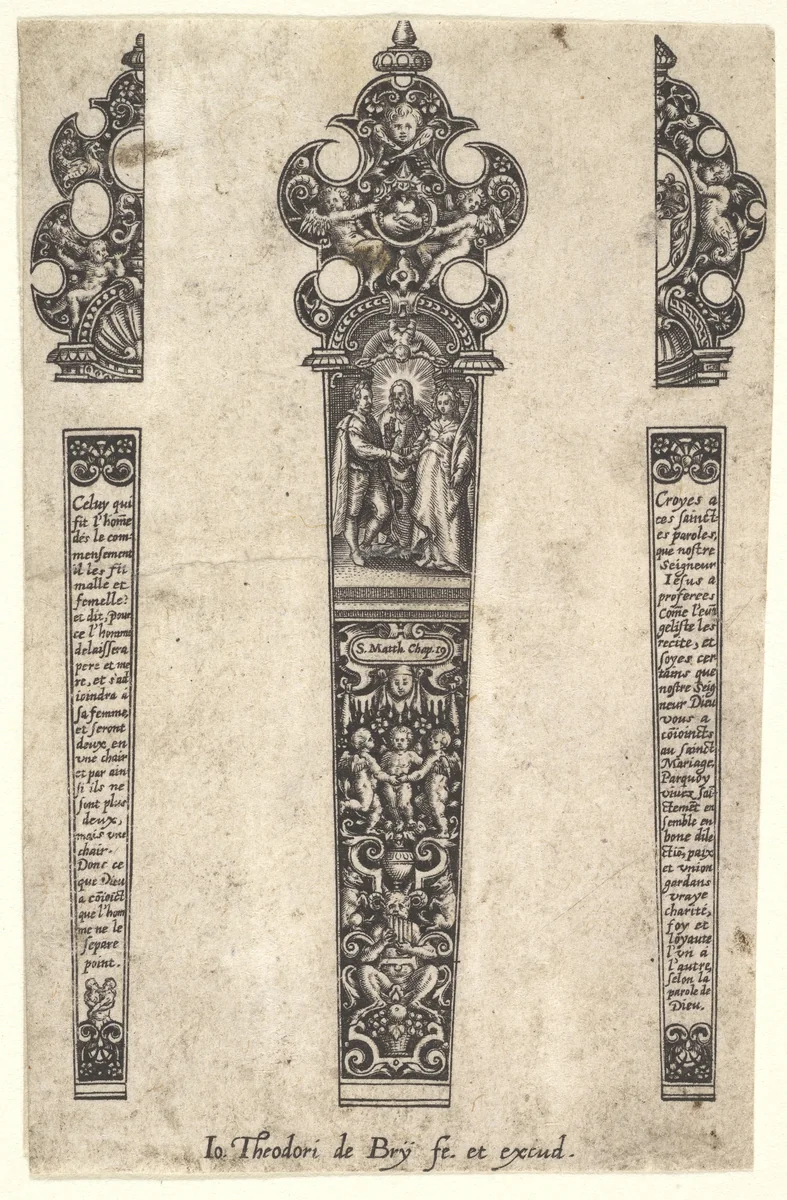 Celuy qui
fit l'hom̃e
dés le com-
mensement
il les fit
malle et
femelle:
et dit, Pour
ce l'homme
delaissera
pere et me
re, et s'ad
ioindra a
sa femme,
et seront
deux en
vne chair
et par ain
si ils ne
sont plus
deux,
mais vne
chair.
Donc ce
que Dieu
a cõioict
que l'hom
me ne le
separe
point.
S. Matth. Chap. 19
Croyes a
ces sainct-
es paroles,
que nostre
Seigneur
Iesus a
proferees
Com̃e l'euã
geliste les
recite, et
soyes cer
tains que
nostre Seig
neur Dieu
vous a
cõioincts
au sainct
Mariage.
Parquoy
viuez sai-
ctement en
semble en
bone dile
ctiõ, paix
et vnion
gardans
vraye
charité,
foy et
loyaute
l'vn a
l'autre,
selon la
parole de
Dieu.
Io. Theodori de Brÿ fe. et excud.